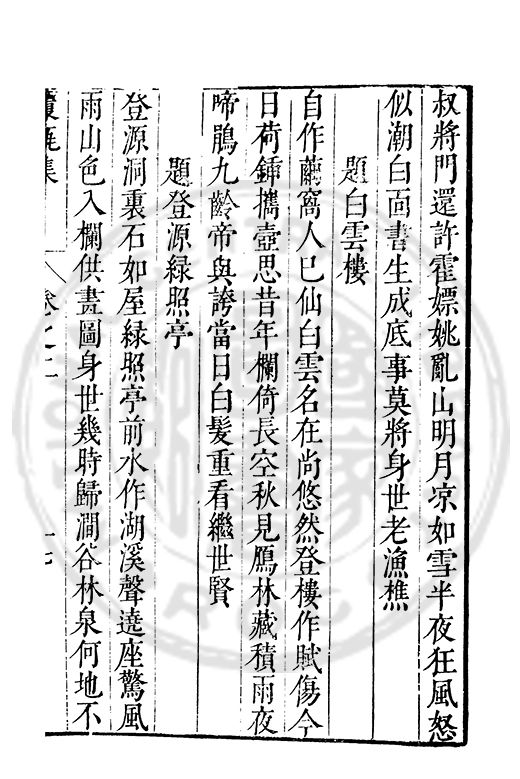 叔將門還許霍嫖姚亂山明月凉如雪半夜狂風怒
似潮白面書生成底事莫將身世老漁樵
題白雲樓
自作窩人已仙白雲名在尚悠然登樓作賦傷今
日荷鍤攜壺思昔年欄倚長空秋見鴈林藏積雨夜
啼鵑九齡帝與誇當日白髮重看繼世賢
題登源緑照亭
登源洞裏石如屋緑照亭前水作湖溪聲遶座驚風
雨山色入欄供畫圖身世幾時歸澗谷林泉何地不
集 卷之二 十七